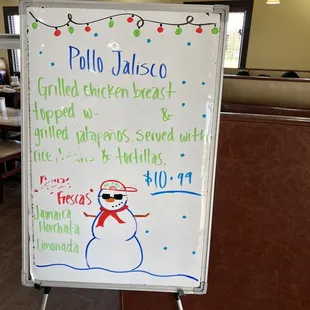 Pollo Jalisco
Grilled chicken breast
topped w- &
grilled jalapeños. Served with
rice & tortillas.
$10.99
Frescas
Jamaica
Horchata
Limonada